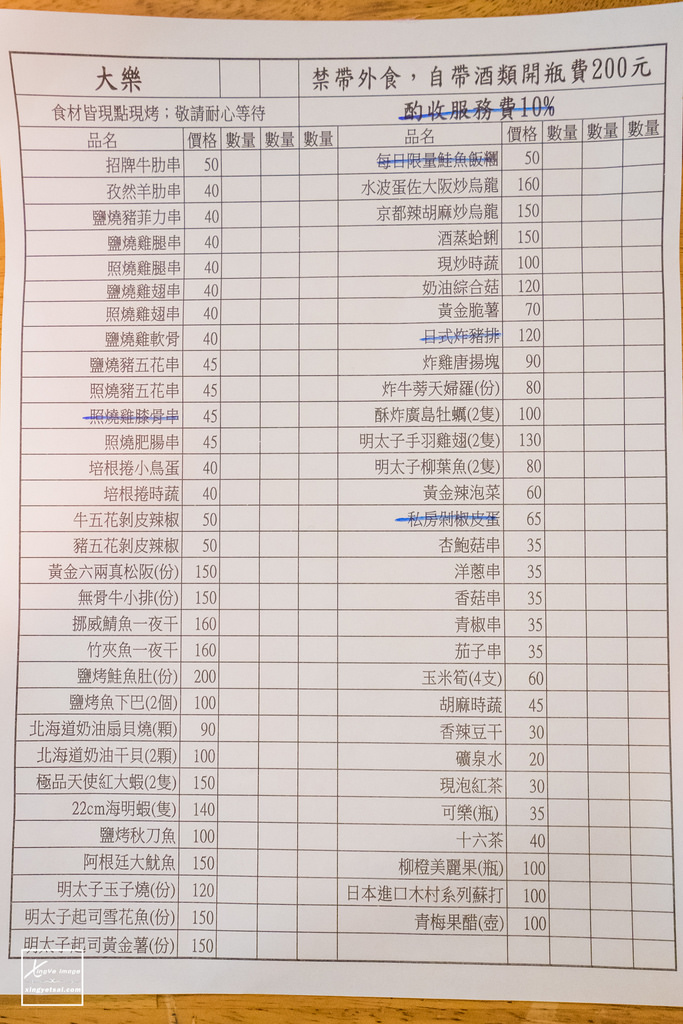 大樂
禁帶外食，自帶酒類開瓶費200元
食材皆現點現烤；敬請耐心等待
酌收服務費10%
品名 價格 數量 數量 數量
招牌牛肋串 50
孜然羊肋串 40
鹽燒豬菲力串 40
鹽燒雞腿串 40
照燒雞腿串 40
鹽燒雞翅串 40
照燒雞翅串 40
鹽燒雞軟骨 40
鹽燒豬五花串 45
照燒豬五花串 45
照燒雞膝骨串 45
照燒肥腸串 45
培根捲小鳥蛋 40
培根捲時蔬 40
牛五花剝皮辣椒 50
豬五花剝皮辣椒 50
黃金六兩真松阪(份) 150
無骨牛小排(份) 150
挪威鯖魚一夜干 160
竹夾魚一夜干 160
鹽烤鮭魚肚(份) 200
鹽烤魚下巴(2個) 100
北海道奶油扇貝燒(顆) 90
北海道奶油干貝(2顆) 100
極品天使紅大蝦(2隻) 150
22cm海明蝦(隻) 140
鹽烤秋刀魚 100
阿根廷大魷魚 150
明太子玉子燒(份) 120
明太子起司雪花魚(份) 150
明太子起司黃金薯(份) 150
品名 價格 數量 數量 數量
每日限量鮭魚飯糰 50
水波蛋佐大阪炒烏龍 160
京都辣胡麻炒烏龍 150
酒蒸蛤蜊 150
現炒時蔬 100
奶油綜合菇 120
黃金脆薯 70
日式炸豬排 120
炸雞唐揚塊 90
炸牛蒡天婦羅(份) 80
酥炸廣島牡蠣(2隻) 100
明太子手羽雞翅(2隻) 130
明太子柳葉魚(2隻) 80
黃金辣泡菜 60
私房剁椒皮蛋 65
杏鮑菇串 35
洋蔥串 35
香菇串 35
青椒串 35
茄子串 35
玉米筍(4支) 60
胡麻時蔬 45
香辣豆干 30
礦泉水 20
現泡紅茶 30
可樂(瓶) 35
十六茶 40
柳橙美麗果(瓶) 100
日本進口木村系列蘇打 100
青梅果醋(壺) 100
XingYe image
xingyetsai.com